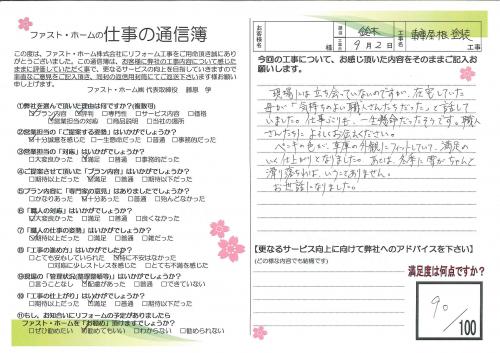 ファスト・ホームの仕事の通信簿
この度は、ファスト・ホーム株式会社にリフォーム工事をご用命頂き誠にあり
がとうございました。お客様に弊社の工事内容について感じた
ままに評価していただく事で、更なるサービスの向上を目指していきますので
率直なご意見をご記入頂き、同封の返信用封筒にてご返送下さいます様お願い
申し上げます。
ファスト・ホーム㈱ 代表取締役 藤原 学
①弊社を選んで頂いた理由は何ですか?(複数可)
☑プラン内容 ☑評判 □専門性 □サービス内容 □価格
□営業担当の対応 □商品説明 □当社の場所
②営業担当の「ご提案する姿勢」はいかがでしょうか?
☑十分誠意を感じた □一生懸命だった □普通 □事務的だった
③営業担当の「対応」はいかがでしょうか?
□大変良かった ☑満足 □普通 □事務的だった
④ご提案させて頂いた「プラン内容」はいかがでしょうか?
□期待以上だった ☑満足 □普通 □期待以下だった
⑤プラン内容に「専門家の意見」はありましたでしょうか?
□かなりあった ☑十分あった □普通 □殆んどなかった
⑥「職人の対応」はいかがでしょうか?
□大変良かった ☑満足 □普通 □良くなかった
⑦「職人の仕事の姿勢」はいかがでしょうか?
□期待以上だった ☑満足 □普通 □期待以下だった
⑧「工事の進め方」はいかがでしょうか?
□とても安心していられた ☑特に不安はなかった
□対応に少しストレスを感じた □とても不満を感じた
⑨現場の「管理状況(整理整頓等)」はいかがでしょうか?
□言うことなし ☑配慮があった □普通 □できていない
⑩「工事の仕上がり」はいかがでしょうか?
□期待以上だった ☑満足 □普通 □期待以下だった
⑪もし、お知合いにリフォームの予定がありましたら
ファスト・ホームを「お勧め」頂けますでしょうか?
□ぜひ勧めたい ☑勧めてもいい □わからない □勧められない
お客様名 鈴木 様
9月2日
工事名 車庫屋根塗装 工事
今回の工事について、お感じ頂いた内容をそのままご記入お
願いします。
現場には立ち会っていないのですが、在宅していた
母が「気持ちのよい職人さんたちだった」と話して
いました。仕事ぶりも、一生懸命だったそうです。職人
さんたちによろしくお伝えください。
ペンキの色が、車庫の外観にフィットしていて、満足の
いく仕上がりとなりました。あとは、冬季に雪がちゃんと
滑り落ちれば、いうことありません。
お世話になりました。
【更なるサービス向上に向けて弊社へのアドバイスを下さい】
(どの様な内容でも結構です)
満足度は何点ですか?
90/100